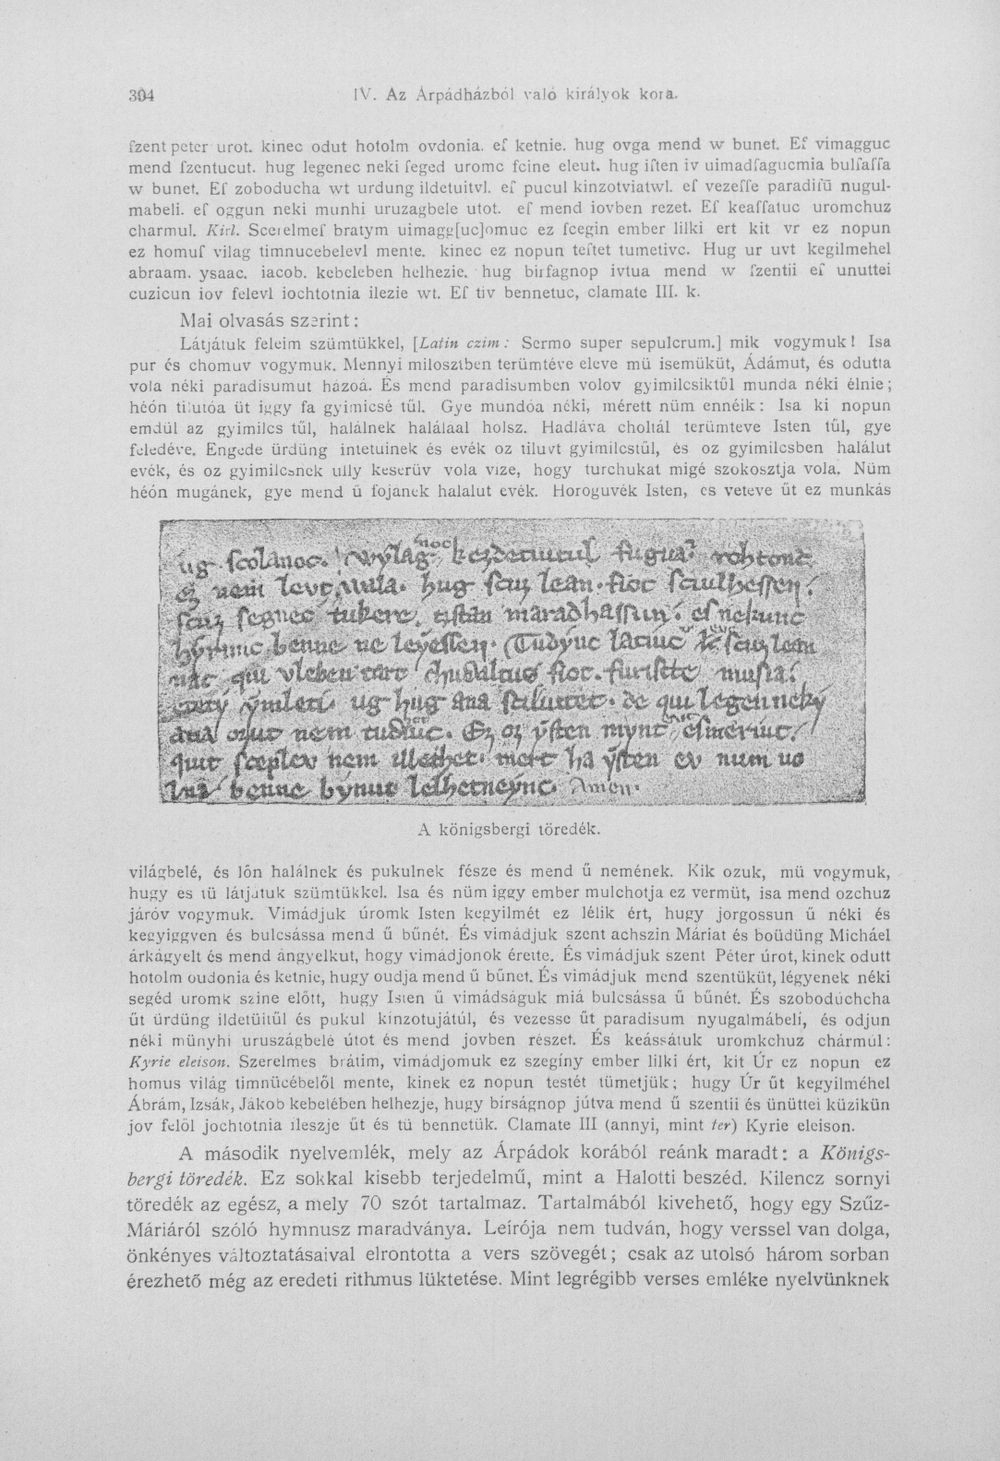 304
IV. Az Árpádházból való királyok kora.
ſzent peter urot. kinec odut hotolm ovdonia. eſ ketnie. hug ovga mend w bunet. Eſ vimagguc
mend ſzentucut. hug legenec neki ſeged uromc ſcine eleut. hug iſten iv uimadſagucmia bulſaſſa
w bunet. Eſ zoboducha wt urdung ildetuitvl. eſ pucul kinzotviatwl. eſ vezeſſe paradiſū nugul-
mabeli. eſ oggun neki munhi uruzagbele utot. eſ mend iovben rezet. Eſ keaſſatuc uromchuz
charmul. Kirl. Scerelmeſ bratym uimagg[uc]omuc ez ſcegin ember lilki ert kit vr ez nopun
ez homuſ vilag timnucebelevl mente. kinec ez nopun teſtet tumetivc. Hug ur uvt kegilmehel
abraam. ysaac. iacob. kebeleben helhezie. hug birſagnop ivtua mend w ſzentii eſ unuttei
cuzicun iov felevl iochtotnia ilezie wt. Eſ tiv bennetuc, clamate III. k.
Mai olvasás szerint:
Látjátuk feleim szümtükkel, [Latin czim: Sermo super sepulcrum.] mik vogymuk! Isa
pur és chomuv vogymuk. Mennyi milosztben terümtéve eleve mü isemüküt, Ádámut, és odutta
vola néki paradisumut házoá. És mend paradisumben volov gyimilcsiktűl munda néki élnie;
héón tilutóa üt iggy fa gyimicsé tűl. Gye mundóa néki, mérett nüm ennéik: Isa ki nopun
emdül az gyimilcs tűl, halálnek haláláal holsz. Hadláva choltál terümteve Isten tűl, gye
feledéve. Engede ürdüng intetuinek és evék oz tiluvt gyimilcstűl, és oz gyimilcsben halálut
evék, és oz gyimilcsnek ully keserüv vola vize, hogy turchukat migé szokosztja vola. Nüm
héón mugánek, gye mend ű fojanek halalut evék. Horoguvék Isten, es veteve űt ez munkás
ug scolanoc. wylag kezdetuitul fugua rohtonc
ez nem levt vala. hug scuz lean. fioc sciulhessen
scuz segnec tukere. tistan maradhassun. es nekunc
hyrunc benne ne leyessen. Tudyuc latiuc evt scuz lean
nac. qui vleben tart chudaltus fioc. furiscte musia.
etety ymleti ug hug ana sciluttet. de qui legen neky
atia ozut nem tudiuc. Ez oz ysten mynt esmeriuc.
quit sceplev nem illethet. mert ha ysten ev num uo
lna benne bynut lelhetneync. Amen.
A königsbergi töredék.
világbelé, és lőn halálnek és pukulnek fésze és mend ű nemének. Kik ozuk, mü vogymuk,
hugy es tü látjatuk szümtükkel. Isa és nüm iggy ember mulchotja ez vermüt, isa mend ozchuz
járóv vogymuk. Vimádjuk úromk Isten kegyilmét ez lélik ért, hugy jorgossun ű néki és
kegyiggyen és bulcsássa mend ű bűnét. És vimádjuk szent achszin Máriat és boüdüng Micháel
árkágyelt és mend ángyelkut, hogy vimádjonok érette. És vimádjuk szent Péter úrot, kinek odutt
hotolm oudonia és ketnie, hugy oudja mend ű bűnet. És vimádjuk mend szentüküt, légyenek néki
segéd uromk szine előtt, hugy Isten ű vimádságuk miá bulcsássa ű bűnét. És szobodúchcha
űt ürdüng ildetüitűl és pukul kinzotujátúl, és vezesse űt paradisum nyugalmábeli, és odjun
néki münyhi uruszágbelé útot és mend jovben részet. És keássátuk uromkchuz chármúl:
Kyrie eleison. Szerelmes brátim, vimádjomuk ez szegíny ember lilki ért, kit Úr ez nopun ez
homus világ timnücébelől mente, kinek ez nopun testét tümetjük; hugy Úr űt kegyilméhel
Ábrám, Izsák, Jákob kebelében helhezje, hugy bírságnop jútva mend ű szentii és ünüttei küzikün
jov felől jochtotnia ileszje űt és tü bennetük. Clamate III (annyi, mint ter) Kyrie eleison.
A második nyelvemlék, mely az Árpádok korából reánk maradt: a Königs-
bergi töredék. Ez sokkal kisebb terjedelmű, mint a Halotti beszéd. Kilencz sornyi
töredék az egész, a mely 70 szót tartalmaz. Tartalmából kivehető, hogy egy Szűz-
Máriáról szóló hymnusz maradványa. Leírója nem tudván, hogy verssel van dolga,
önkényes változtatásaival elrontotta a vers szövegét; csak az utolsó három sorban
érezhető még az eredeti rithmus lüktetése. Mint legrégibb verses emléke nyelvünknek